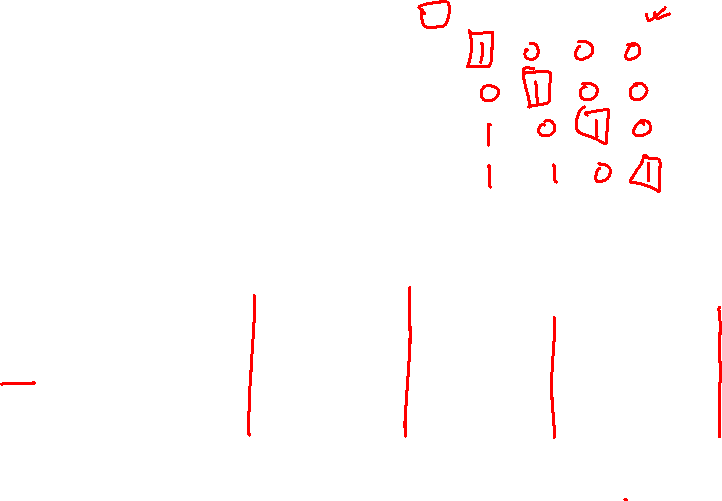 1 0 0 0
0 1 0 0
1 0 1 0
1 1 0 1